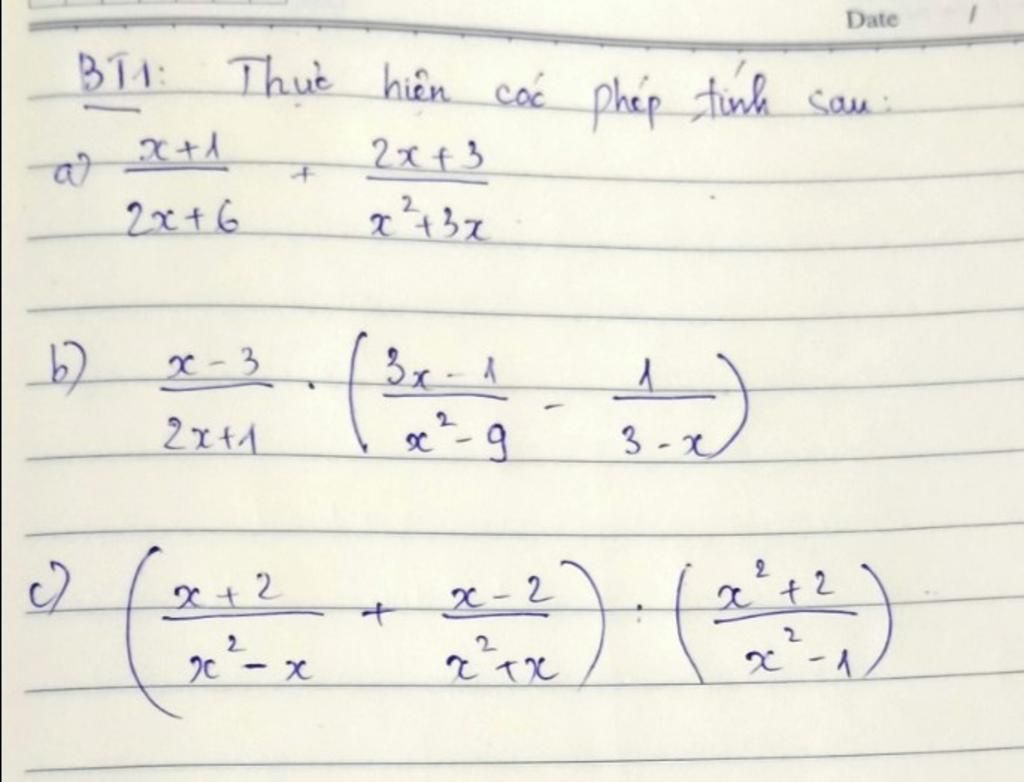 Date /
BT1: Thực hiện các phép tính sau:
a) \frac{x+1}{2x+6} + \frac{2x+3}{x^2+3x}
b) \frac{x-3}{2x+1} . \left( \frac{3x-1}{x^2-9} - \frac{1}{3-x} \right)
c) \left( \frac{x+2}{x^2-x} + \frac{x-2}{x^2+x} \right) : \left( \frac{x^2+2}{x^2-1} \right)